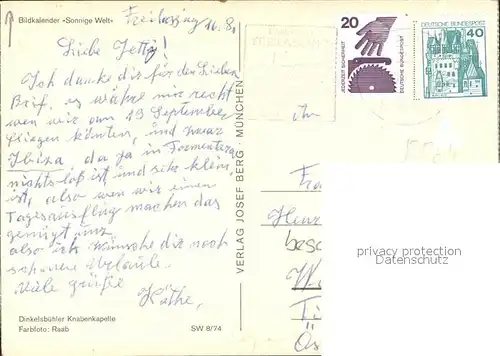 Bildkalender «Sonnige Welt»
Freilassing 16.8.
Liebe Jetty!
Ich danke dir für den Lieben
Brief, es währe mir recht
wen wir am 13 September
fliegen könnten, und zwar
Ibiza, da ja in Formentera
nichts loß ist, und sehr klein,
ist, also wen wir einen
Tagesausflug machen das
genügt uns
also ich wünsche dir noch
schönen Urlaub.
Viele grüße
Käthe,
Dinkelsbühler Knabenkapelle
Farbfoto: Raab
SW 8/74
VERLAG JOSEF BERG · MÜNCHEN
20
JEDERZEIT SICHERHEIT
DEUTSCHE BUNDESPOST
DEUTSCHE BUNDESPOST
40
Fra
privacy protection
Datenschutz